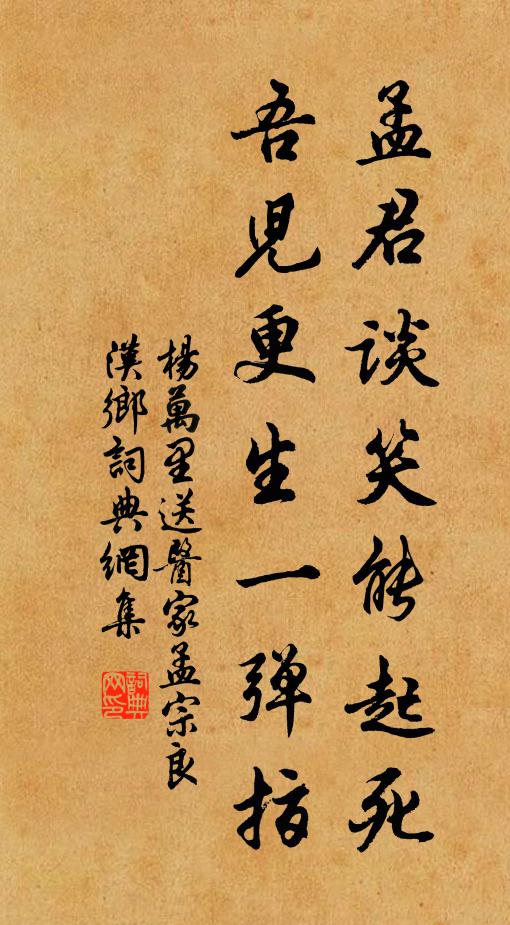 孟君談笑能起死
吾児更生一弾指
楊萬里送醫家孟宗良
漢鄉詞典網集
詞典網印